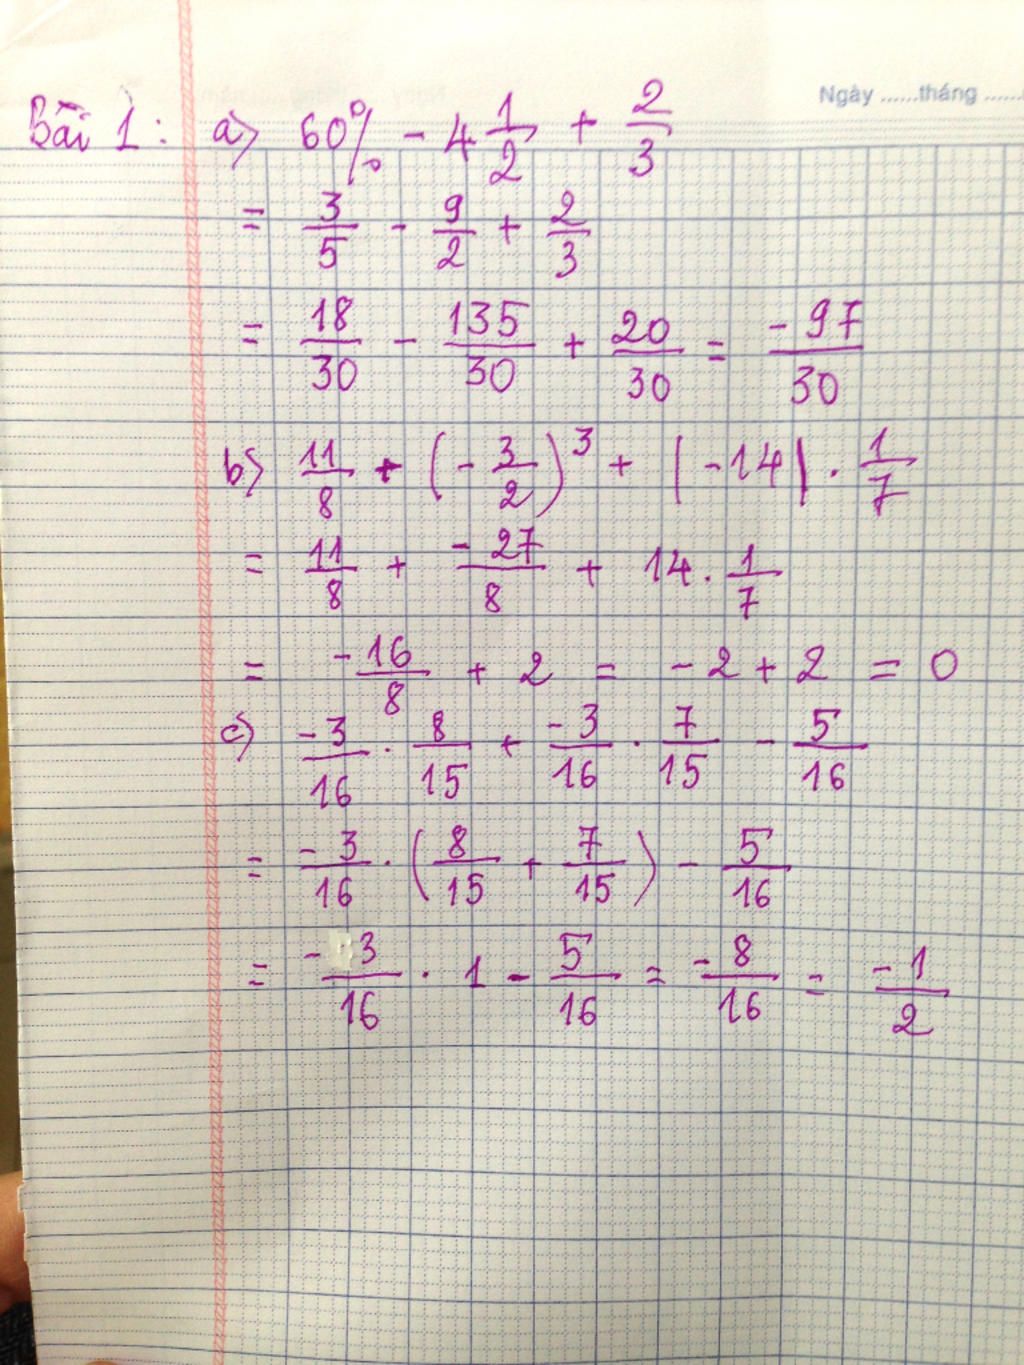 Ngày ......tháng ......
Bài 1: a) 60% - 4 1/2 + 2/3
= 3/5 - 9/2 + 2/3
= 18/30 - 135/30 + 20/30 = -97/30
b) 11/8 + (-3/2)³ + |-14| . 1/7
= 11/8 + -27/8 + 14 . 1/7
= -16/8 + 2 = -2 + 2 = 0
c) -3/16 . 8/15 + -3/16 . 7/15 - 5/16
= -3/16 . (8/15 + 7/15) - 5/16
= -3/16 . 1 - 5/16 = -8/16 = -1/2